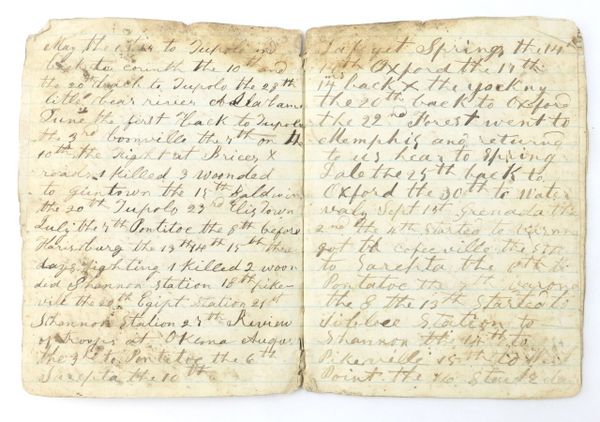 May the 1st 64 to Tupolo and
back to corinth the 10th and
the 20th back to Tupolo the 28th
little bear rivier Allabama
June the first back to Tupolo
the 3rd boonville the 7th on the
10th the fight at Brices X
roads 1 killed 3 woonded
to guntown the 15th Baldwin
the 20th Tupolo 23rd Elistown
July the 7th Pontitoc the 8th before
Harrisburg the 13th 14th 15th three
days fighting 1 killed 2 woon
ded Shannon Station 18th pike
vile the 20th Egipt Station 21st
Shannon Station 27th Review
of troops at Oklona Augu
the 3rd to Pontitoc the 6th
Sarepta the 10th
Lafayet Springs the 14th
Oxford the 17th
back X the yockny
the 20th back to Oxford
the 22nd Forest went to
Memphis and returnd
to us hear to Spring
Dale the 25th back to
Oxford the 30th to Watr
valy Sept 1st Grenada the
2nd the 4th Started to
got th Cofeeville the 5th
to Sarepta the to
Pontatoc the 7th
the 8 the 13th Started to
Station to
Shannon the 14th to
Pikerville 15th to West
Point the 16